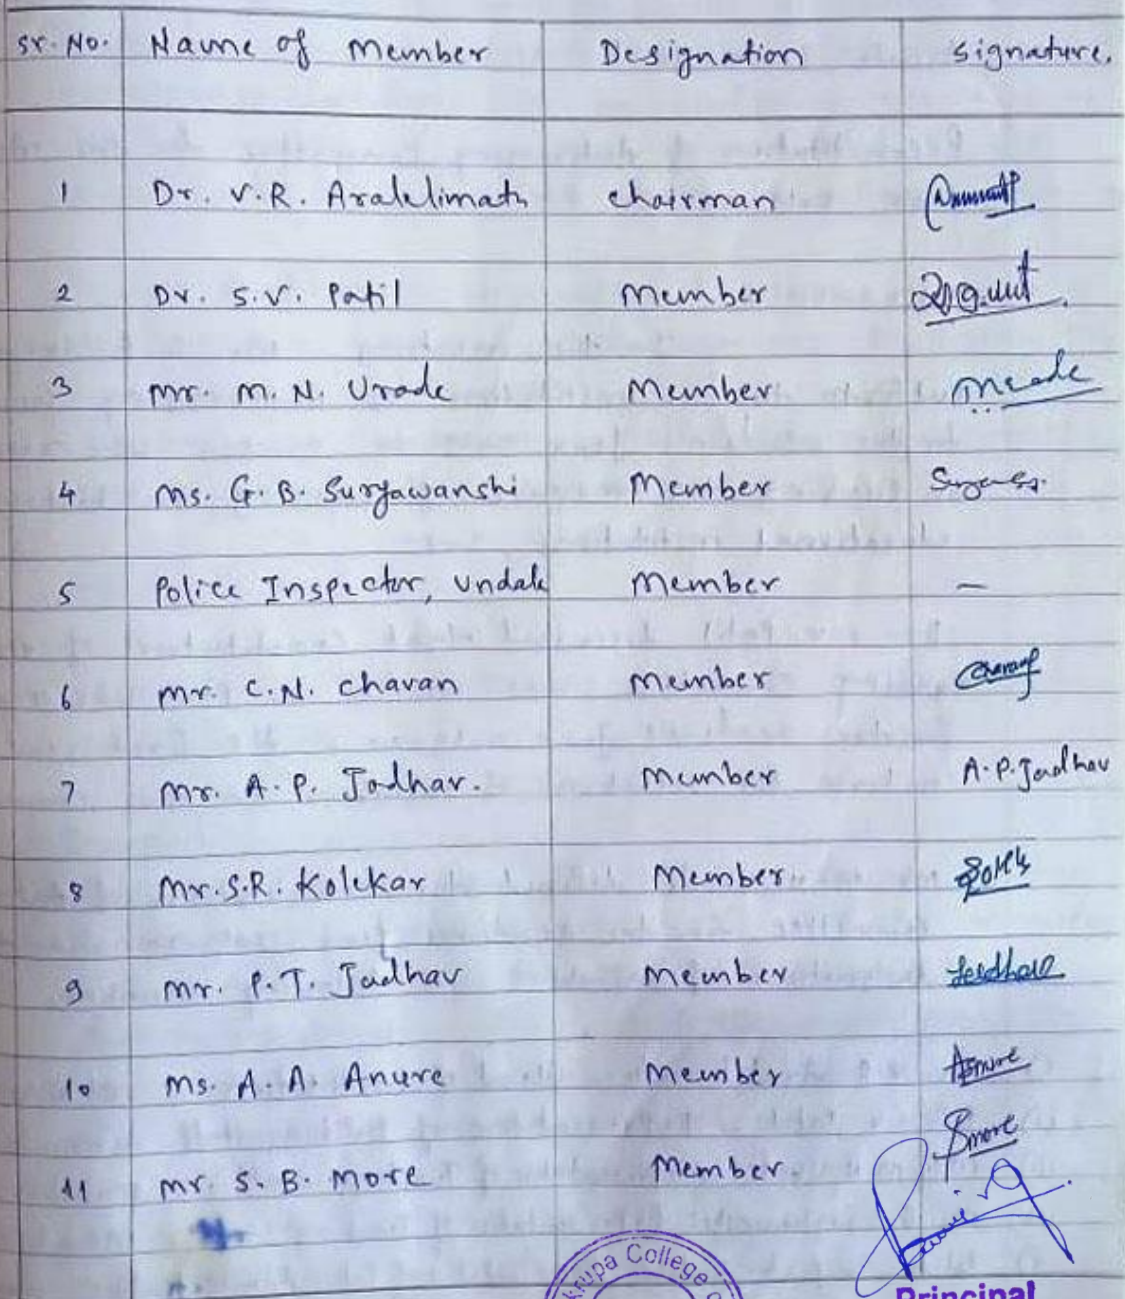 Sr. No. Name of Member Designation Signature.
1 Dr. V.R. Aralelimath chairman
2 Dr. S.V. Patil Member
3 Mr. M. N. Urade Member
4 Ms. G. B. Suryawanshi Member
5 Police Inspector, Undale Member —
6 Mr. C.N. Chavan Member
7 Mr. A. P. Jadhav. Member A.P.Jadhav
8 Mr. S.R. Kolekar Member
9 Mr. P.T. Jadhav Member Jadhav
10 Ms. A. A. Anure Member Anure
11 Mr. S. B. More Member. Smore
krupa College
Principal